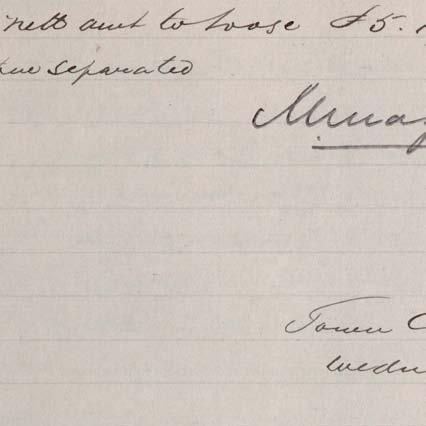 nett amt to loose £5.
separated
Town C
Wedn